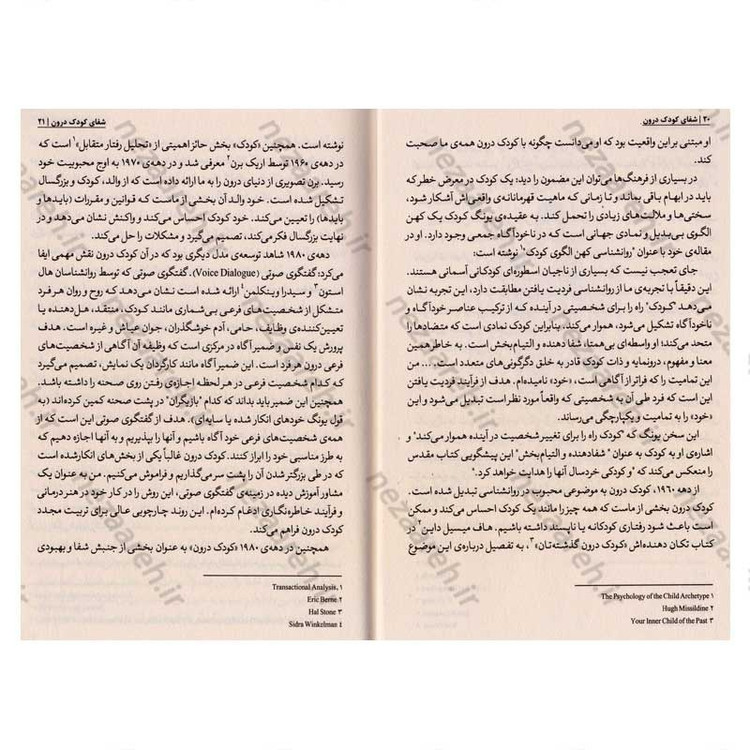 ۲۰ | شفای کودک درون
او مبتنی بر این واقعیت بود که او می‌دانست چگونه با کودک درون همه‌ی ما صحبت
کند.
در بسیاری از فرهنگ‌ها می‌توان این مضمون را دید: یک کودک در معرض خطر که
باید در ابهام باقی بماند و تا زمانی که ماهیت قهرمانانه‌ی واقعی‌اش آشکار شود،
سختی‌ها و ملالت‌های زیادی را تحمل کند. به عقیده‌ی یونگ کودک یک کهن
الگوی بی‌بدیل و نمادی جهانی است که در ناخودآگاه جمعی وجود دارد. او در
مقاله‌ی خود با عنوان "روانشناسی کهن الگوی کودک"۱ نوشته است:
جای تعجب نیست که بسیاری از ناجیان اسطوره‌ای کودکانی آسمانی هستند.
این دقیقاً با تجربه‌ی ما از روانشناسی فردیت یافتن مطابقت دارد، این تجربه نشان
می‌دهد "کودک" راه را برای شخصیتی در آینده که از ترکیب عناصر خودآگاه و
ناخودآگاه تشکیل می‌شود، هموار می‌کند. بنابراین کودک نمادی است که متضادها را
متحد می‌کند؛ او واسطه‌ای بی‌همتا، شفا دهنده و التیام‌بخش است. به خاطر همین
معنا و مفهوم، درونمایه و ذات کودک قادر به خلق دگرگونی‌های متعدد است.... من
این تمامیت را که فراتر از آگاهی است، «خود» نامیده‌ام. هدف از فرآیند فردیت یافتن
این است که فرد طی آن به شخصیتی که واقعاً مورد نظر است تبدیل می‌شود و این
«خود» را به تمامیت و یکپارچگی می‌رساند.
این سخن یونگ که "کودک راه را برای تغییر شخصیت در آینده هموار می‌کند" و
اشاره‌ی او به کودک به عنوان " شفادهنده و التیام‌بخش" این پیشگویی کتاب مقدس
را منعکس می‌کند که "و کودکی خردسال آنها را هدایت خواهد کرد."
از دهه ۱۹۶۰، کودک درون به موضوعی محبوب در روانشناسی تبدیل شده است.
کودک درون بخشی از ماست که همه چیز را مانند یک کودک احساس می‌کند و ممکن
است باعث شود رفتاری کودکانه یا ناپسند داشته باشیم. هاف میسیل داین۲ در
کتاب تکان دهنده‌اش «کودک درون گذشته‌تان»۳، به تفصیل درباره‌ی این موضوع
The Psychology of the Child Archetype ۱
Hugh Missildine ۲
Your Inner Child of the Past ۳
شفای کودک درون | ۲۱
نوشته است. همچنین «کودک» بخش حائز اهمیتی از «تحلیل رفتار متقابل»۱ است که
در دهه‌ی ۱۹۶۰ توسط اریک برن۲ معرفی شد و در دهه‌ی ۱۹۷۰ به اوج محبوبیت خود
رسید. برن تصویری از دنیای درون را به ما ارائه داده است که از والد، کودک و بزرگسال
تشکیل شده است. خود والد آن بخشی از ماست که قوانین و مقررات (بایدها و
نبایدها) را تعیین می‌کند. خود کودک احساس می‌کند و واکنش نشان می‌دهد و در
نهایت بزرگسال فکر می‌کند، تصمیم می‌گیرد و مشکلات را حل می‌کند.
دهه‌ی ۱۹۸۰ شاهد توسعه‌ی مدل دیگری بود که در آن کودک درون نقش مهمی ایفا
می‌کرد: گفتگوی صوتی (Voice Dialogue). گفتگوی صوتی که توسط روانشناسان هال
استون۳ و سیدرا وینکلمن۴ ارائه شده است نشان می‌دهد که روح و روان هر فرد
متشکل از شخصیت‌های فرعی بی‌شماری مانند کودک، منتقد، هل‌دهنده یا
تعیین‌کننده‌ی وظایف، حامی، آدم خوشگذران، جوان عیاش و غیره است. هدف
پرورش یک نفس و ضمیر آگاه در مرکزی است که وظیفه آن آگاهی از شخصیت‌های
فرعی درون هر فرد است. این ضمیر آگاه مانند کارگردان یک نمایش، تصمیم می‌گیرد
که کدام شخصیت فرعی در هر لحظه اجازه‌ی رفتن روی صحنه را داشته باشد.
همچنین این ضمیر باید بداند که کدام "بازیگران" در پشت صحنه کمین کرده‌اند (به
قول یونگ خودهای انکار شده یا سایه‌ای). هدف از گفتگوی صوتی این است که از
همه‌ی شخصیت‌های فرعی خود آگاه باشیم و آنها را بپذیریم و به آنها اجازه دهیم که
به طرز مناسبی خود را ابراز کنند. کودک درون غالباً یکی از بخش‌های انکارشده است
که در طی بزرگتر شدن آن را پشت سر می‌گذاریم و فراموش می‌کنیم. من به عنوان یک
مشاور آموزش دیده در زمینه‌ی گفتگوی صوتی، این روش را در کار خود در هنر درمانی
و فرآیند خاطره‌نگاری ادغام کرده‌ام. این روند چارچوبی عالی برای تربیت مجدد
کودک درون فراهم می‌کند.
همچنین در دهه‌ی ۱۹۸۰ «کودک درون» به عنوان بخشی از جنبش شفا و بهبودی
Transactional Analysis, ۱
Eric Berne ۲
Hal Stone ۳
Sidra Winkelman ٤
nezaareh.ir